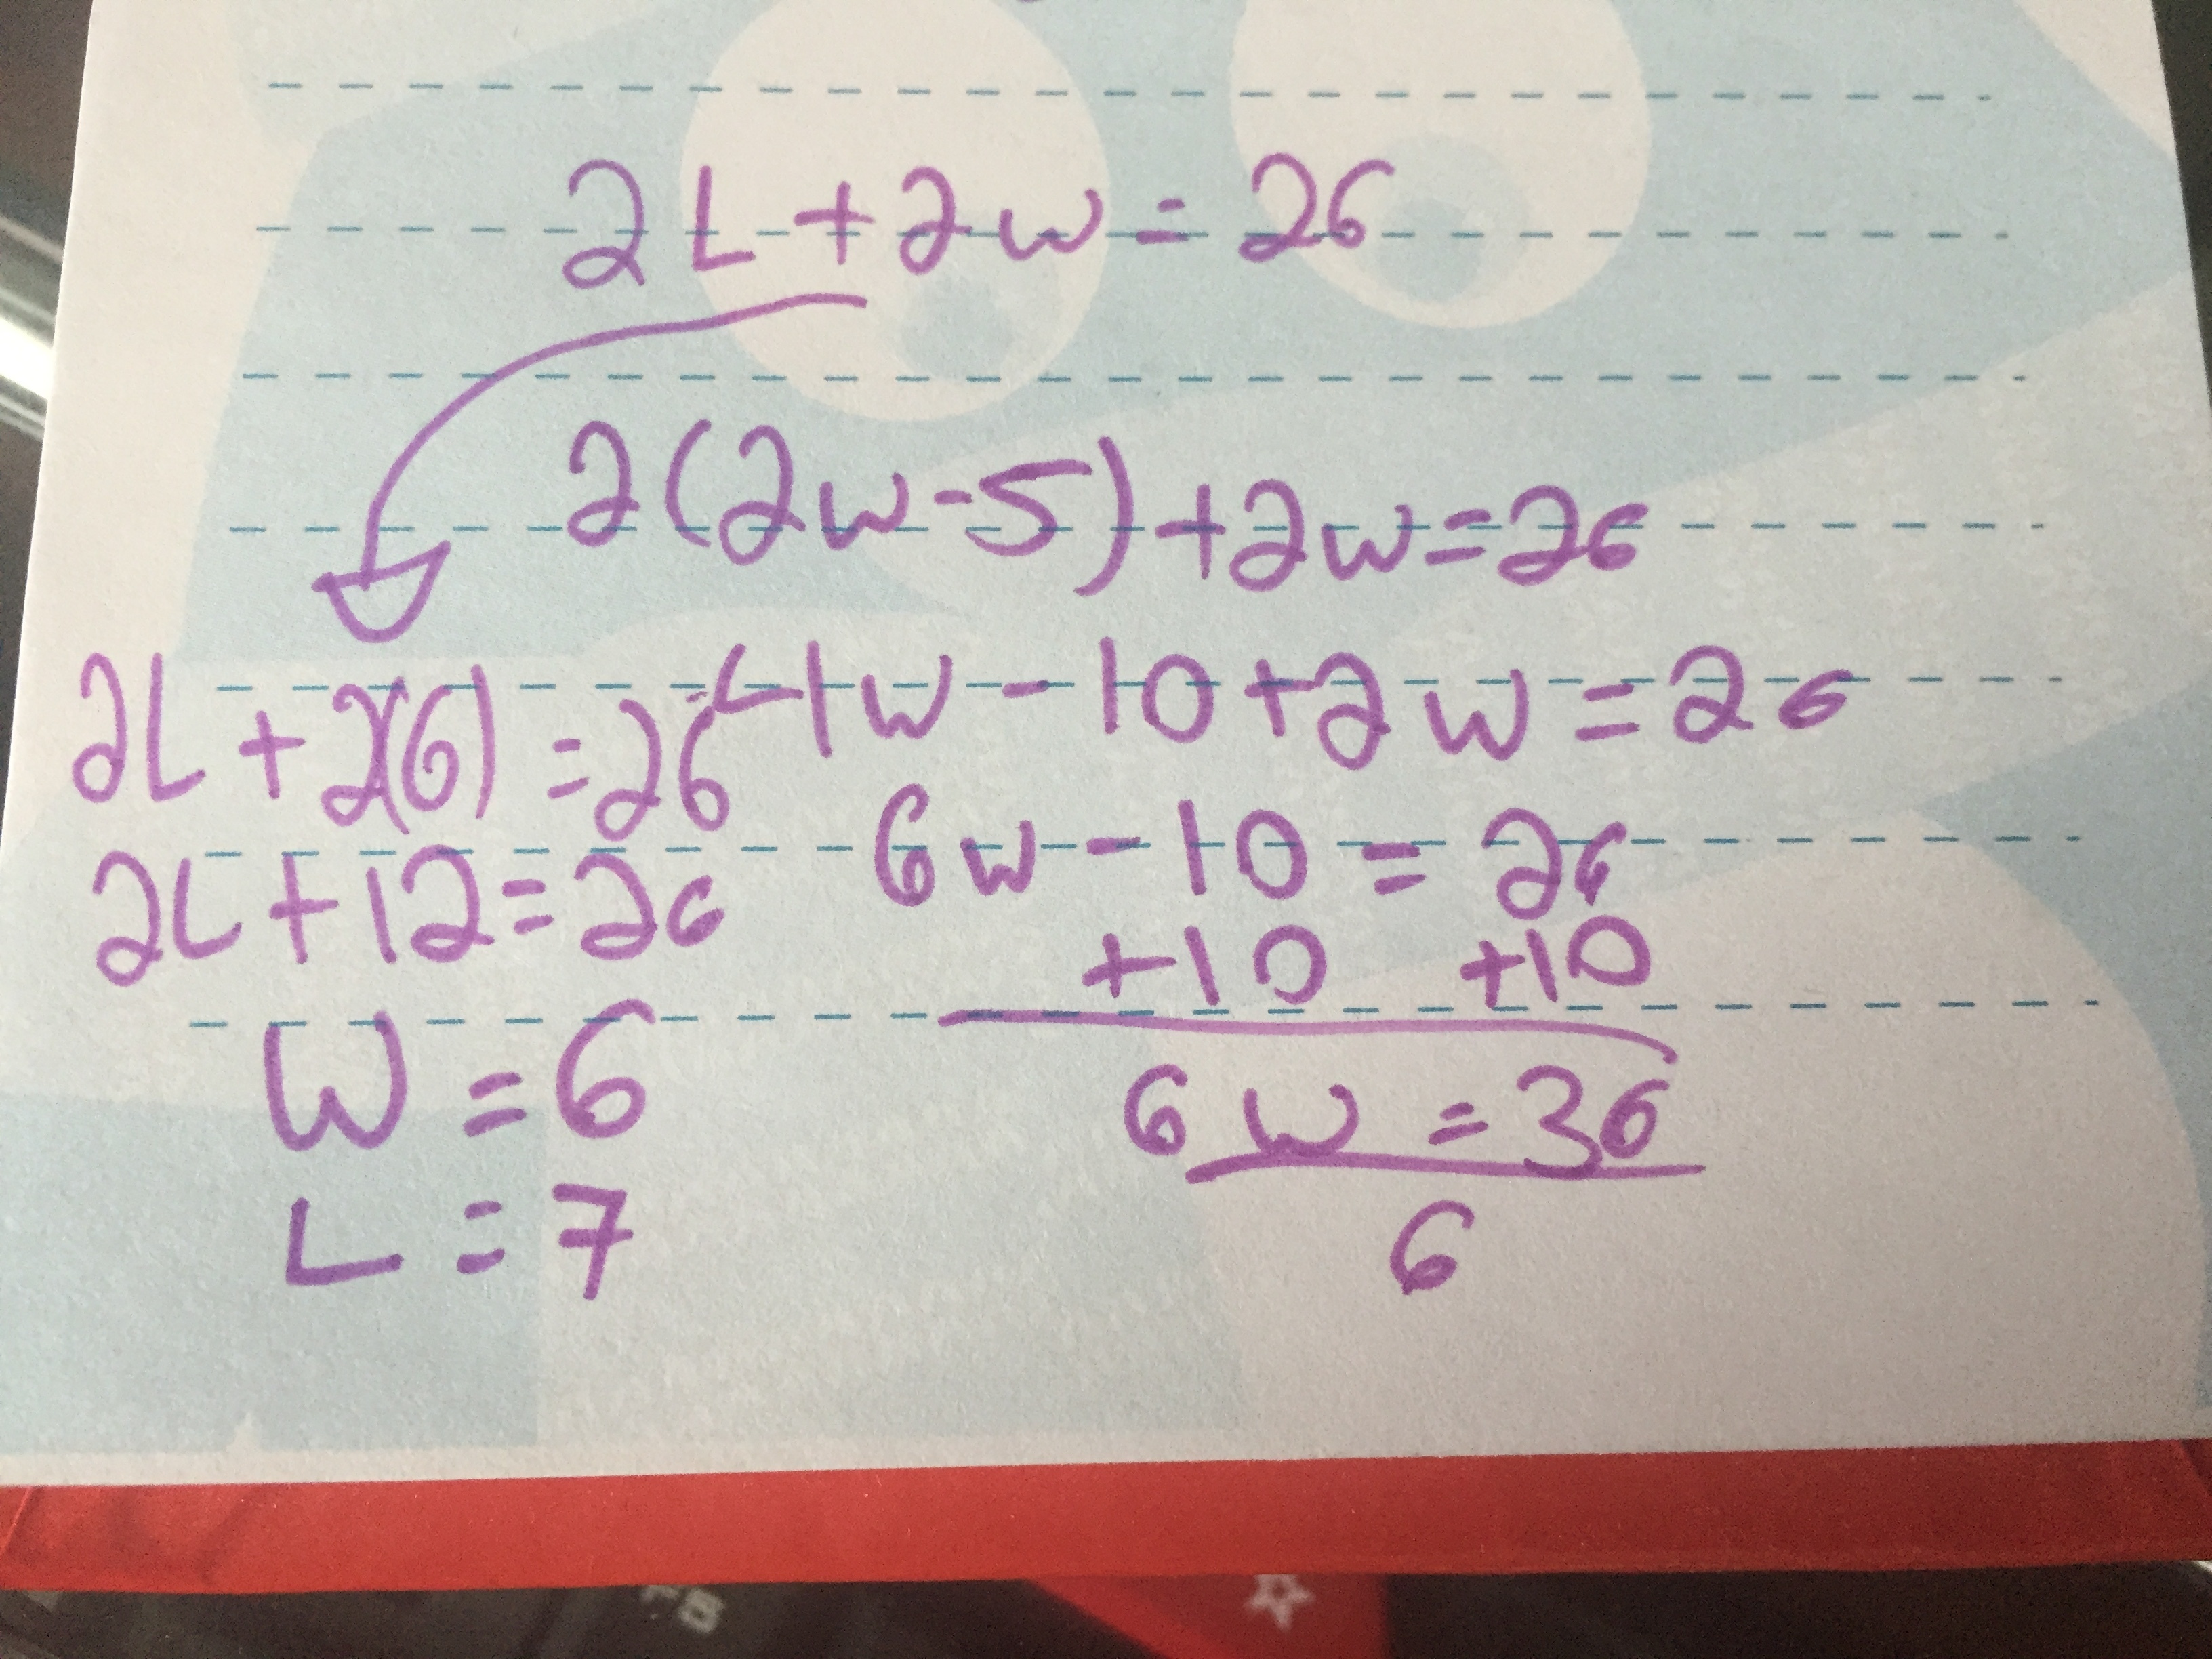 2L+2w=26
2(2w-5)+2w=26
4w-10+2w=26
6w-10=26
+10 +10
6w=36
6
2L+2(6)=26
2L+12=26
W=6
L=7